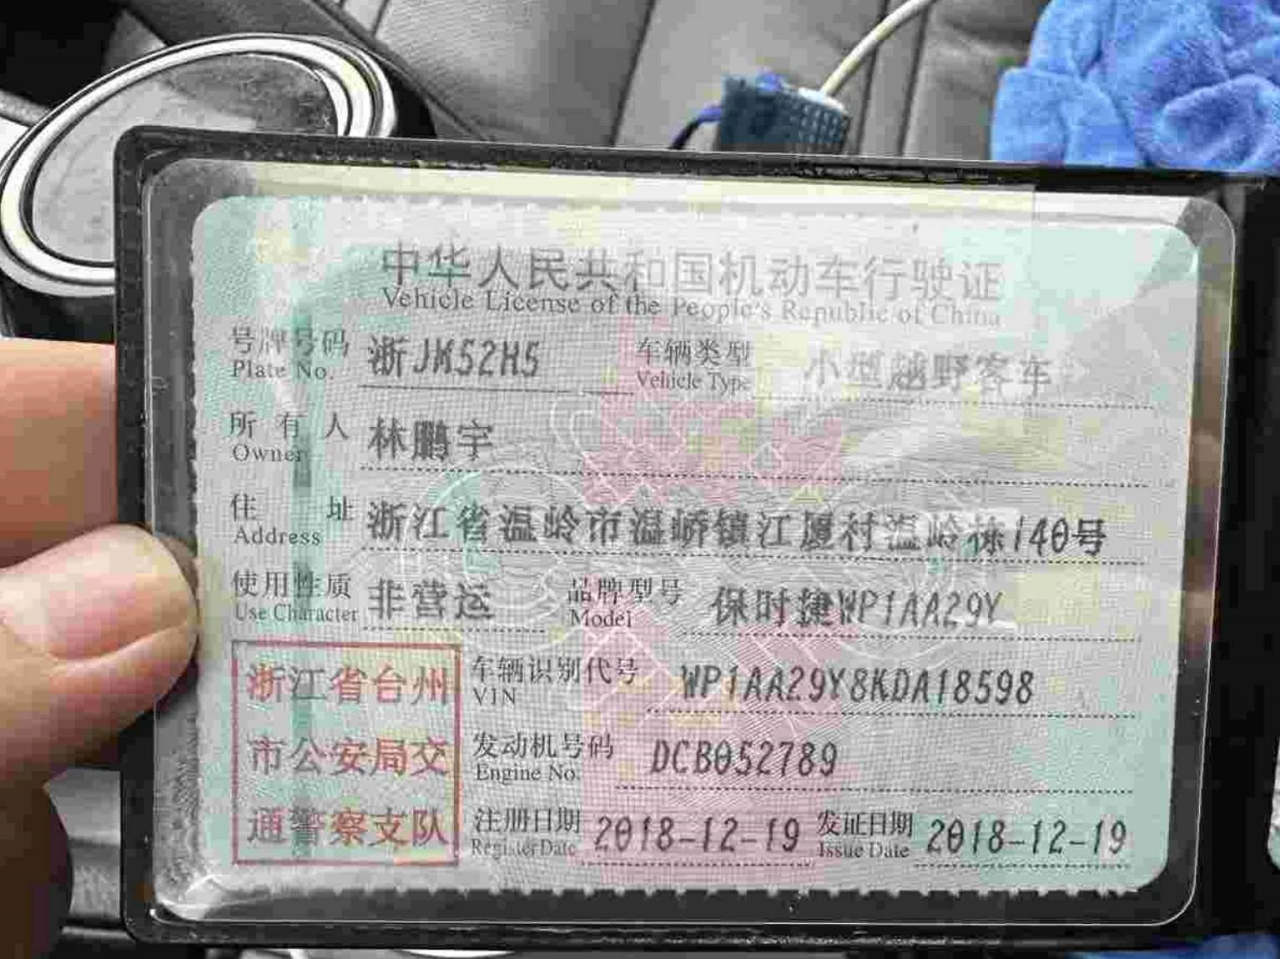 中华人民共和国机动车行驶证
Vehicle License of the People's Republic of China
号牌号码 浙JK52H5 车辆类型 小型越野客车
Plate No. Vehicle Type
所有人 林鹏宇
Owner
住址 浙江省温岭市温峤镇江厦村温岭栋140号
Address
使用性质 非营运 品牌型号 保时捷WP1AA29Y
Use Character Model
浙江省台州 车辆识别代号 WP1AA29Y8KDA18598
VIN
市公安局交 发动机号码 DCB052789
Engine No.
通警察支队 注册日期 2018-12-19 发证日期 2018-12-19
Register Date Issue Date